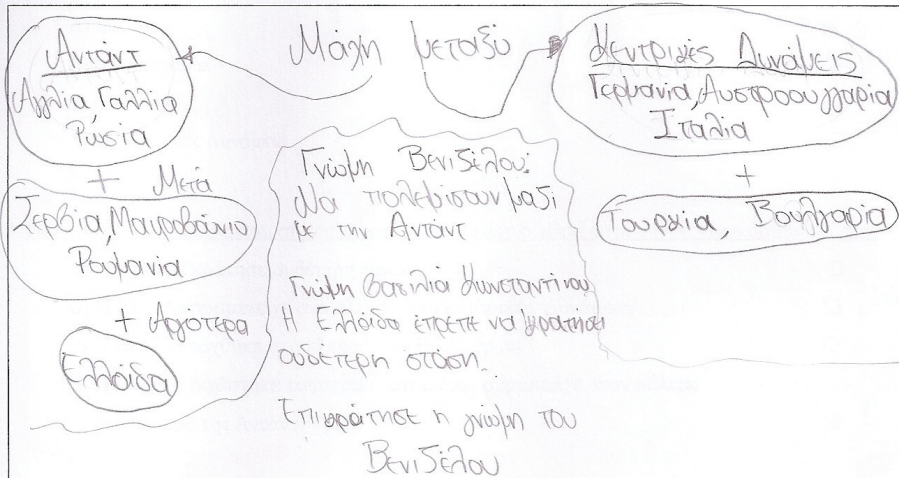 Μάχη μεταξύ
Αντάντ
Αγγλία, Γαλλία
Ρωσία
+ Μετά
Σερβία, Μαυροβούνιο
Ρουμανία
+ Αργότερα
Ελλάδα
Γνώμη Βενιζέλου:
Να πολεμίσουν μαζί
με την Αντάντ
Γνώμη βασιλιά Κωνσταντίνου
Η Ελλάδα έπρεπε να κρατήσει
ουδέτερη στάση.
Επικράτησε η γνώμη του
Βενιζέλου
Κεντρικές Δυνάμεις
Γερμανία, Αυστροουγγαρία
Ιταλία
+
Τουρκία, Βουλγαρία